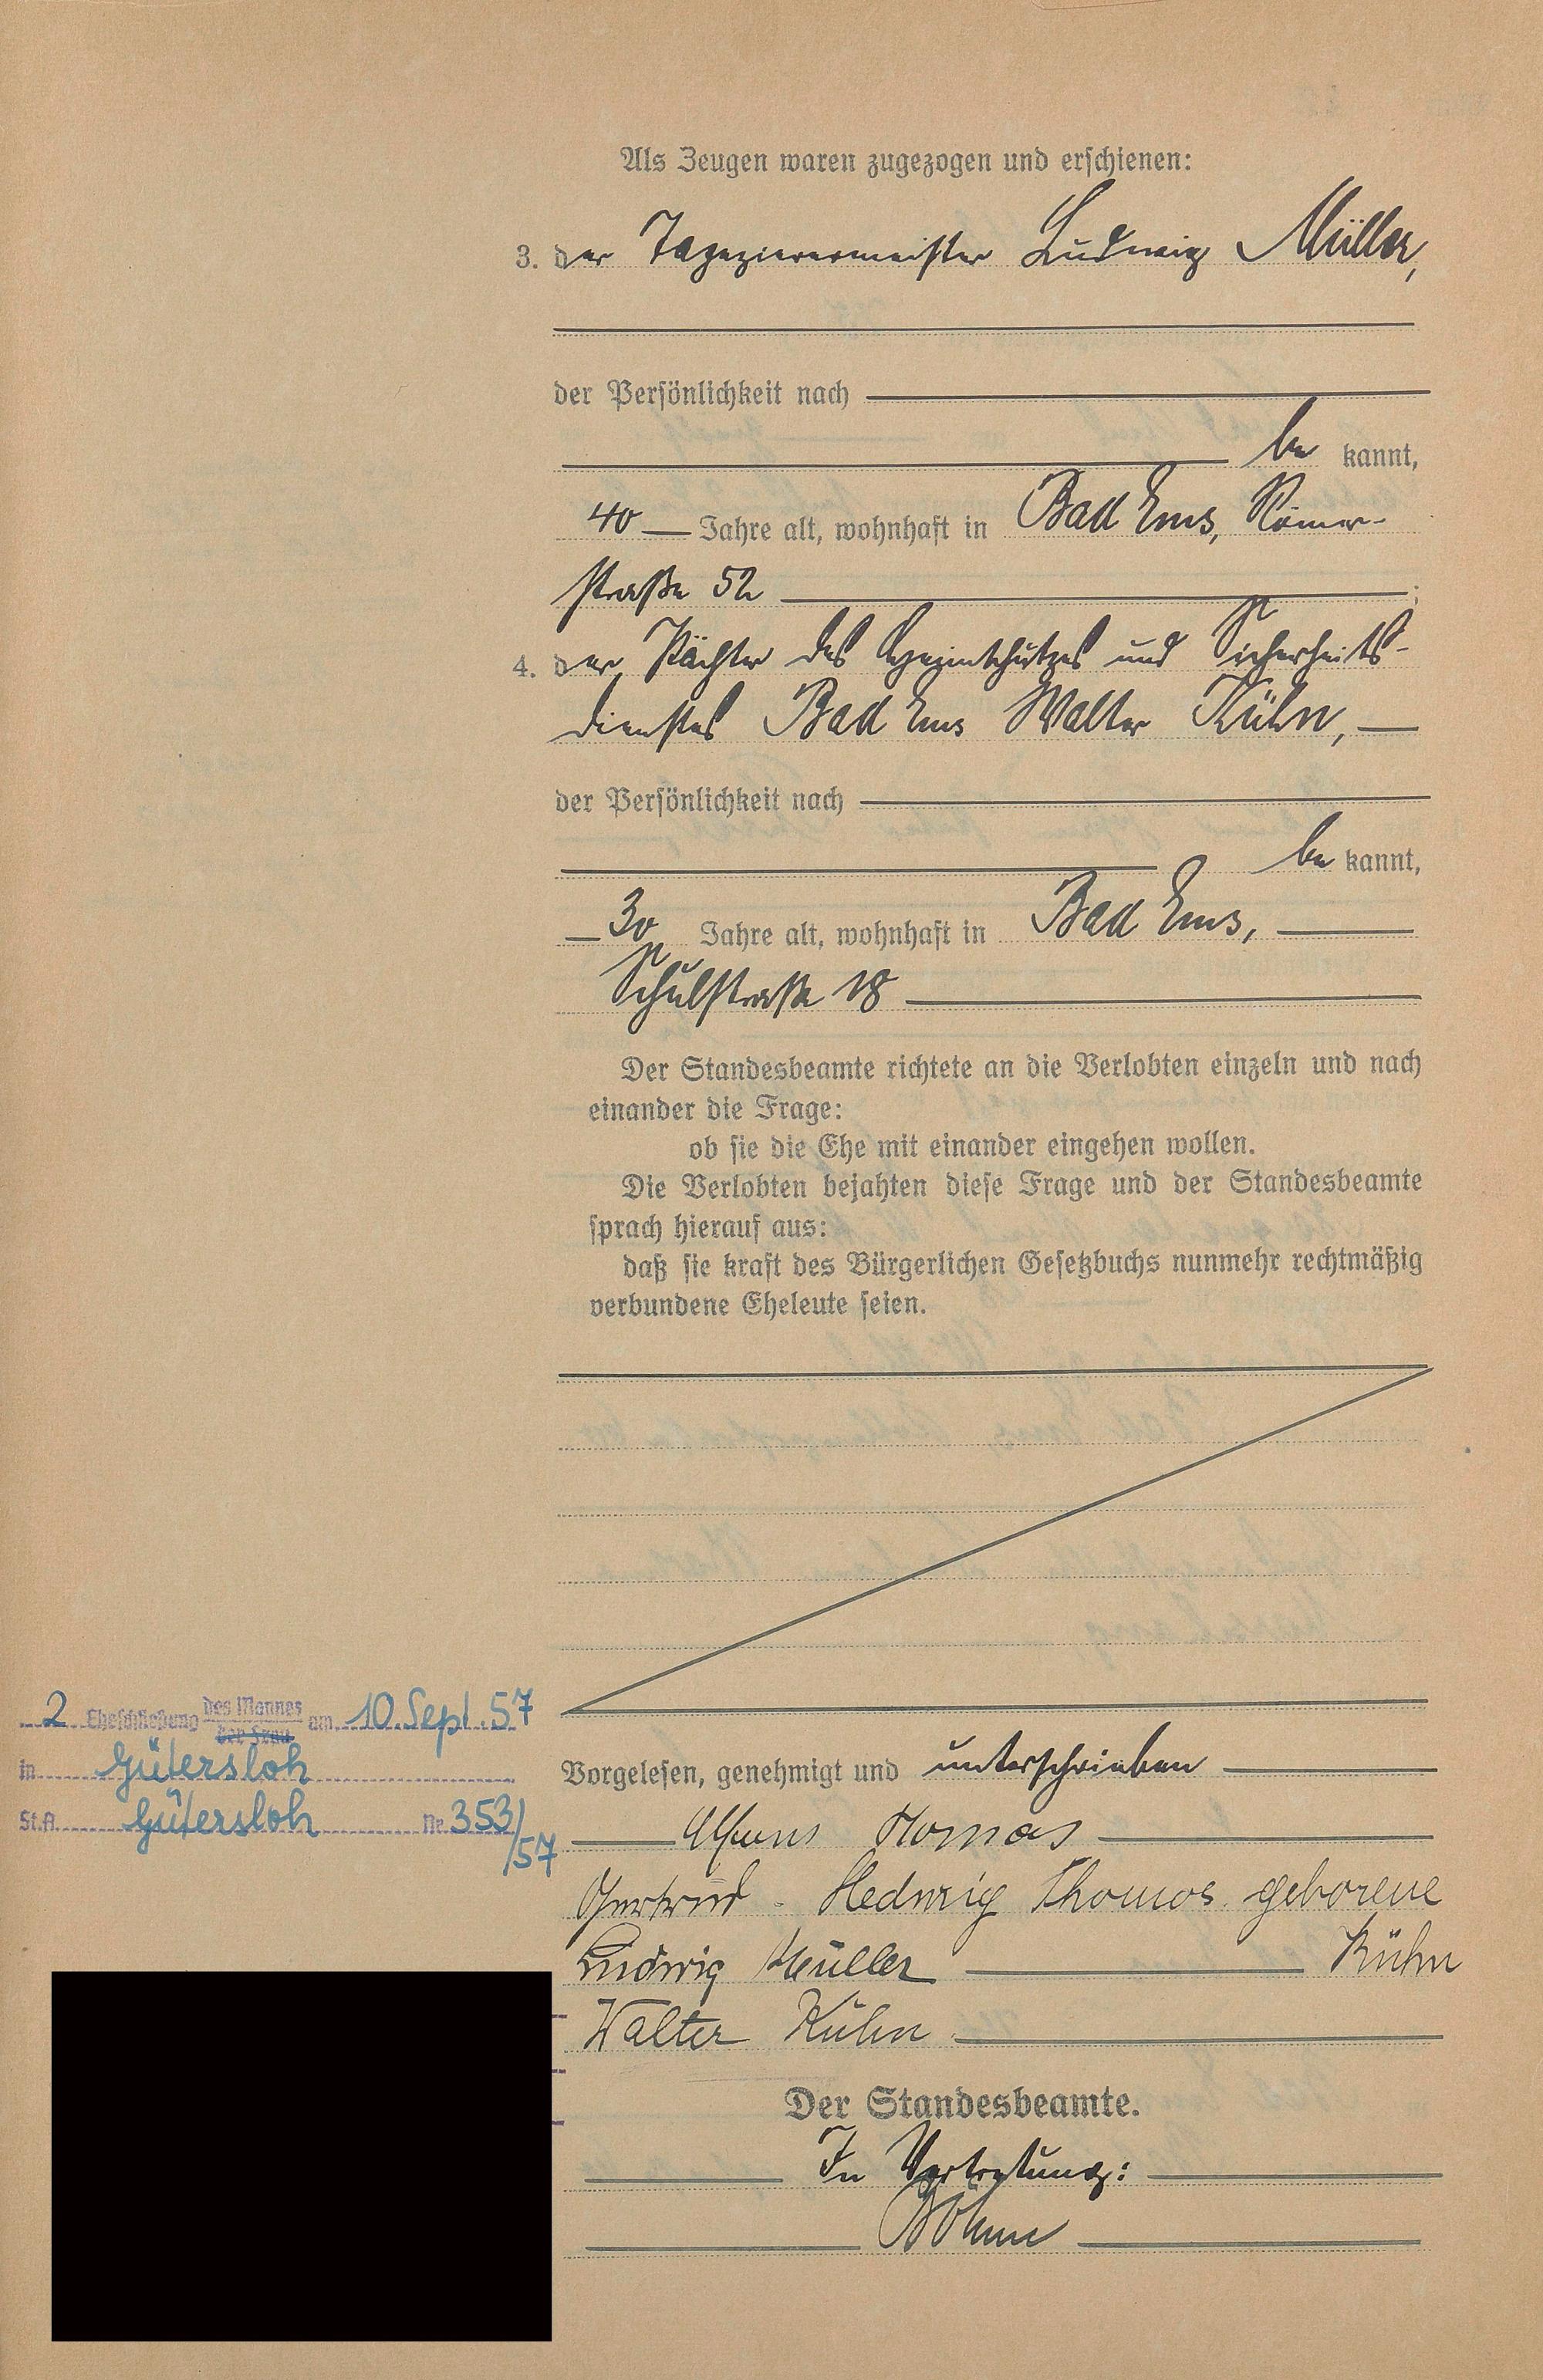 Als Zeugen waren zugezogen und erschienen:
3. der Tapezierermeister Ludwig Müller,
der Persönlichkeit nach
be kannt,
40 Jahre alt, wohnhaft in Bad Ems, Römer-
straße 52 ;
4. der Pächter des Heimschutzes und Sicherheits-
dienstes Bad Ems Walter Kühn,
der Persönlichkeit nach
be kannt,
30 Jahre alt, wohnhaft in Bad Ems,
Schulstraße 18
Der Standesbeamte richtete an die Verlobten einzeln und nach
einander die Frage:
ob sie die Ehe mit einander eingehen wollen.
Die Verlobten bejahten diese Frage und der Standesbeamte
sprach hierauf aus:
daß sie kraft des Bürgerlichen Gesetzbuchs nunmehr rechtmäßig
verbundene Eheleute seien.
2 Eheschließung des Mannes der Frau am 10. Sept. 57
in Gütersloh
St.A. Gütersloh Nr. 353/
/57
Vorgelesen, genehmigt und unterschrieben
Alfons Thomas
Gertrud Hedwig Thomas geborene
Ludwig Müller Kühn
Walter Kühn
Der Standesbeamte.
In Vertretung:
Böhm